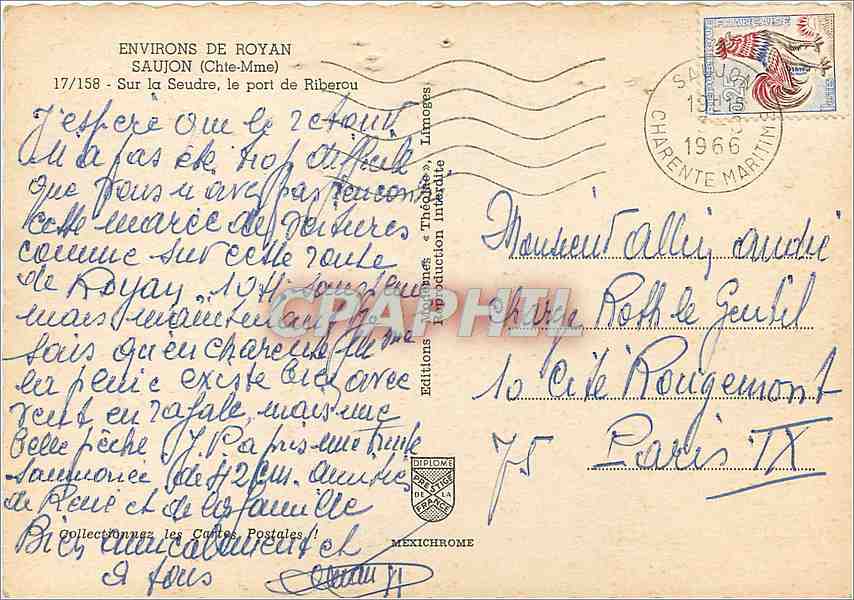 ENVIRONS DE ROYAN
SAUJON (Chte-Mme)
17/158 - Sur la Seudre, le port de Riberou
J'espère que le retour
n'a pas été trop difficile
que vous n'avez pas rencontré
cette marée de voitures
comme sur cette route
de Royan 10H
mais maintenant je
sais qu'en charente
la pluie existe bien avec
vent en rafale, mais une
belle pêche J. P a pris une truite
saumonée de 42 cm. amitiés
de René et de la famille
Bien amicalement et
à tous
Collectionnez les Cartes Postales !
Editions Modernes « Théojac », Limoges
Reproduction interdite
DIPLOME
PRESTIGE
DE LA
FRANCE
MEXICHROME
CPARHIL
SAUJON
15H15
1966
CHARENTE MARITIME
Monsieur allin andré
charge Roth le Gentil
10 Cité Rougemont
75 Paris IX